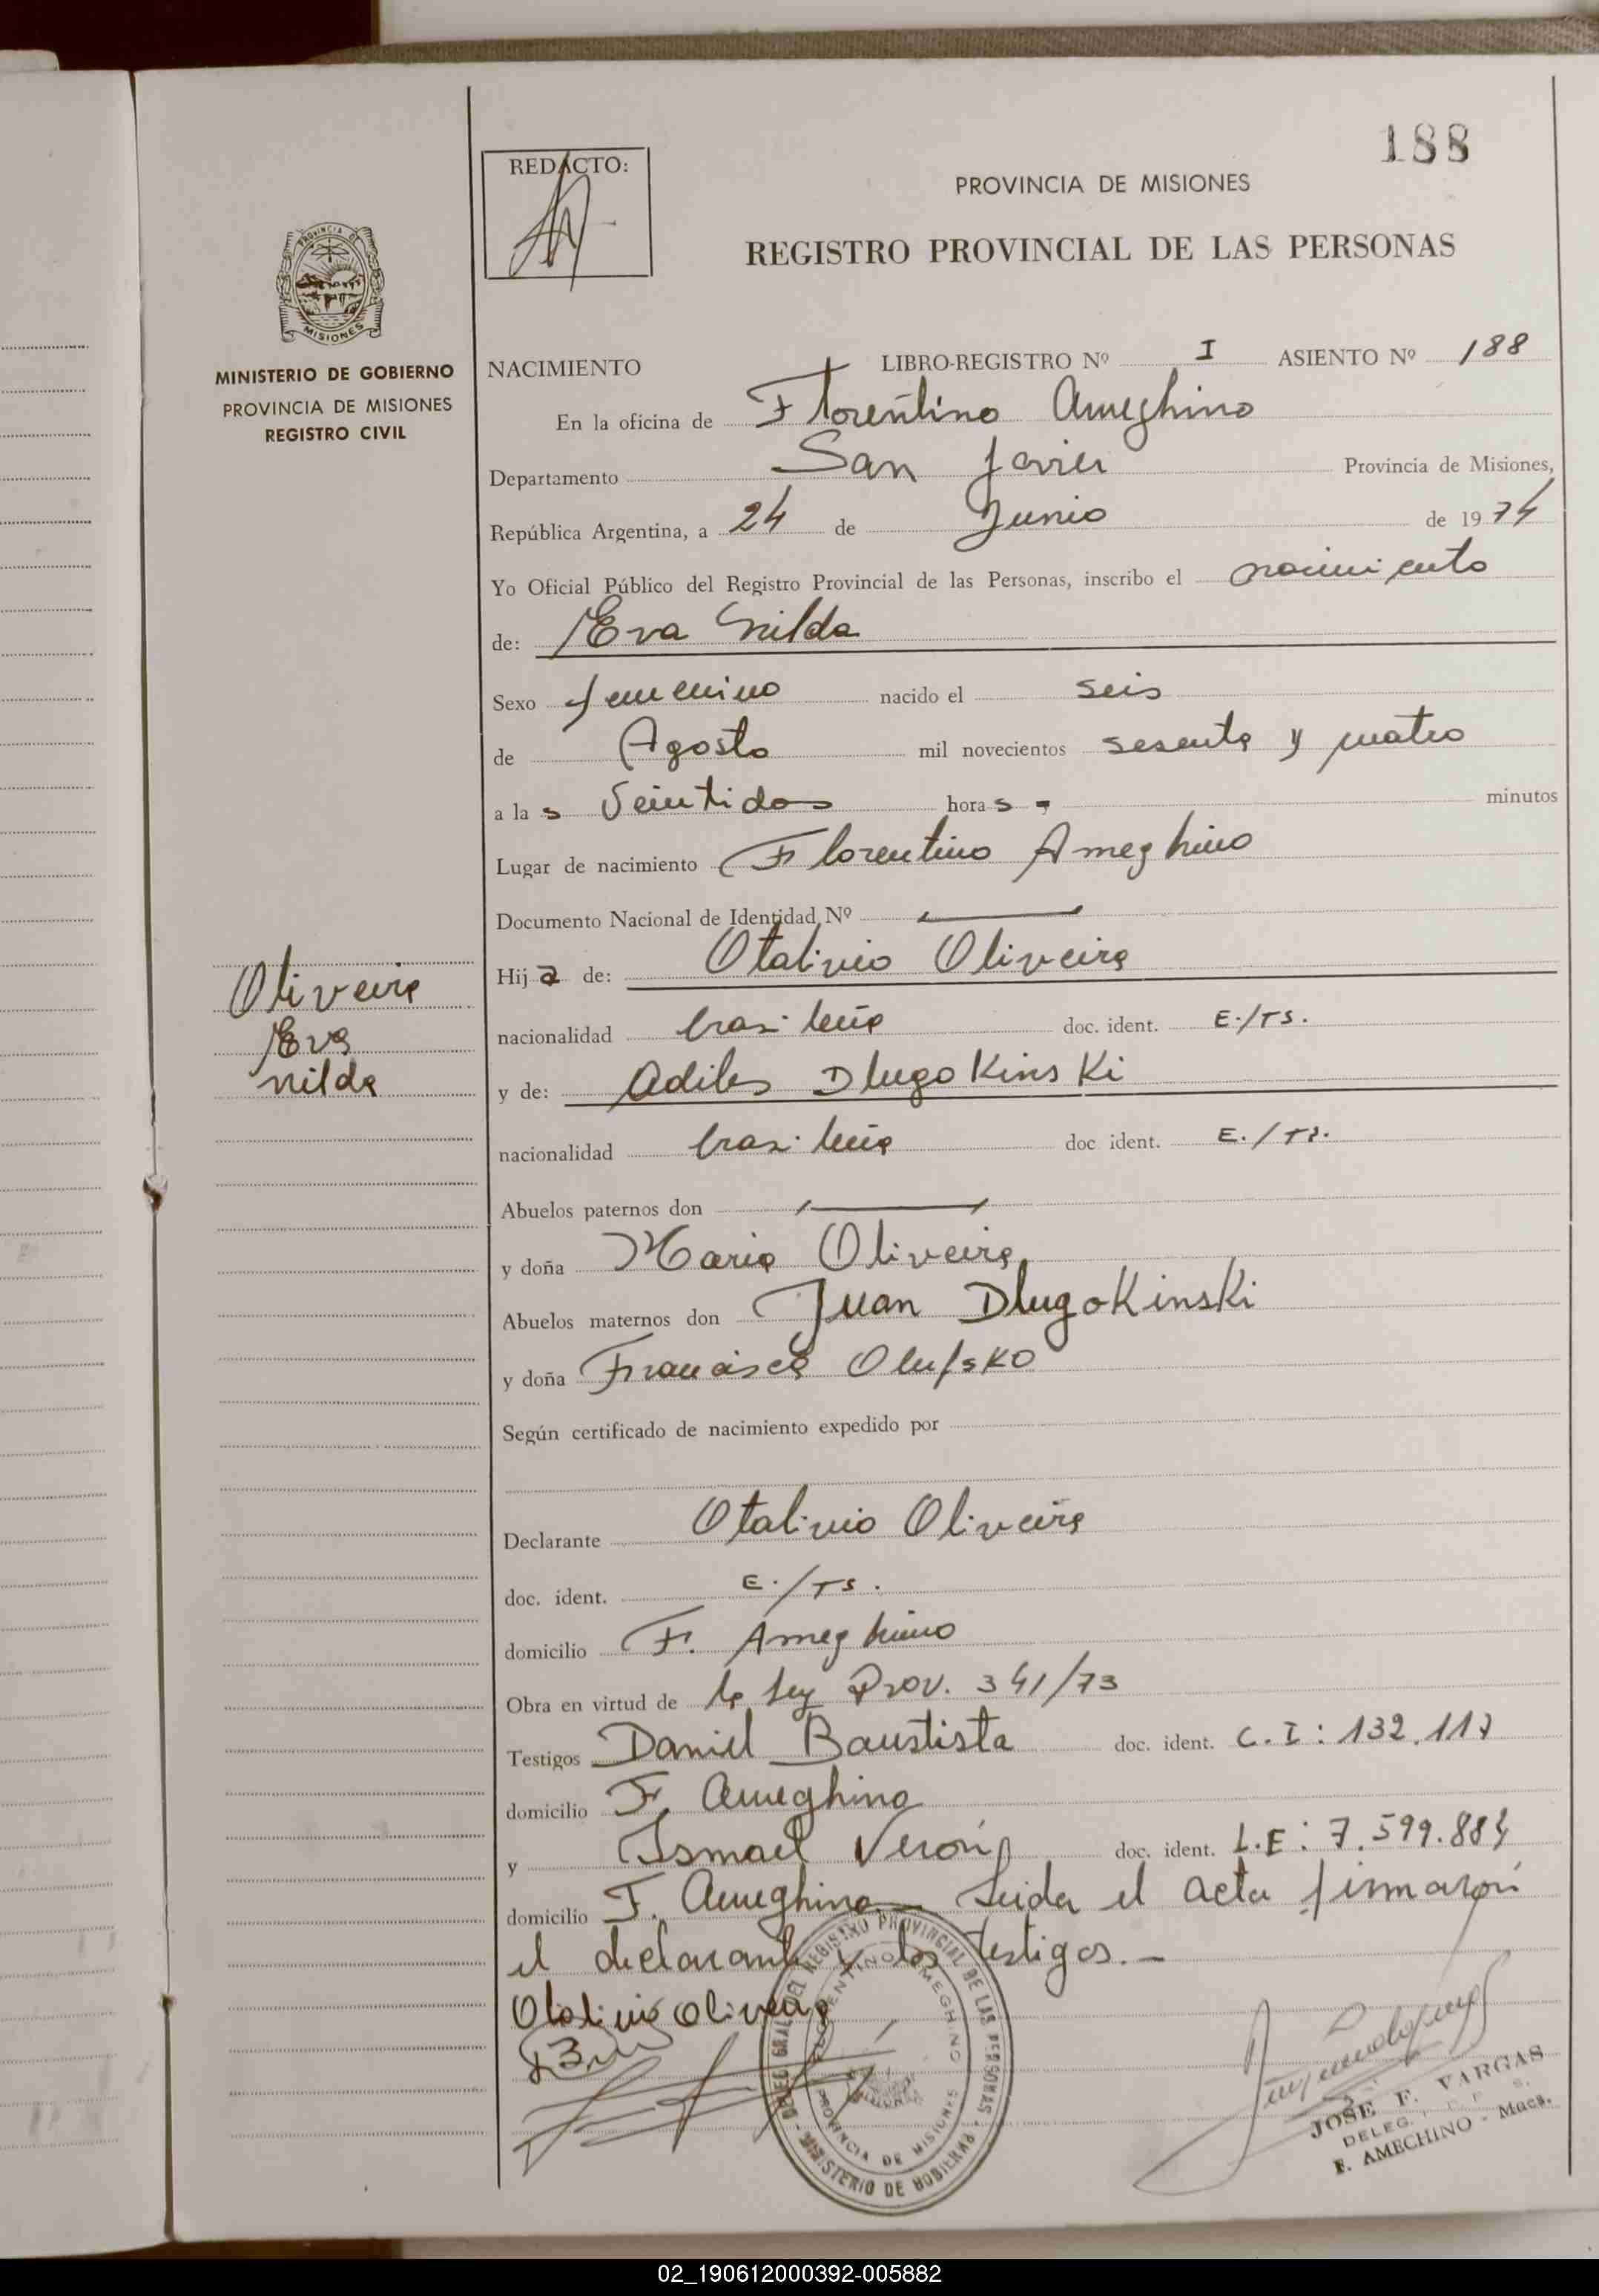 188
REDACTO:
PROVINCIA DE MISIONES
REGISTRO PROVINCIAL DE LAS PERSONAS
PROVINCIA DE
MISIONES
MINISTERIO DE GOBIERNO
PROVINCIA DE MISIONES
REGISTRO CIVIL
NACIMIENTO LIBRO-REGISTRO Nº I ASIENTO Nº 188
En la oficina de Florentino Ameghino
Departamento San Javier Provincia de Misiones,
República Argentina, a 24 de Junio de 1974
Yo Oficial Público del Registro Provincial de las Personas, inscribo el nacimiento
de: Eva Nilda
Sexo femenino nacido el seis
de Agosto mil novecientos sesenta y cuatro
a la s Veintidos hora s - minutos
Lugar de nacimiento Florentino Ameghino
Documento Nacional de Identidad Nº
Oliveira
Eva
Nilda
Hij a de: Otalivio Oliveira
nacionalidad brasileña doc. ident. E./TS.
y de: Adiles DlugoKinsKi
nacionalidad brasileña doc ident. E./TS.
Abuelos paternos don
y doña Maria Oliveira
Abuelos maternos don Juan DlugoKinsKi
y doña Francisca
Según certificado de nacimiento expedido por
Declarante Otalivio Oliveira
doc. ident. E./TS.
domicilio F. Ameghino
Obra en virtud de la Ley Prov. 341/73
Testigos Daniel Baustista doc. ident. C.I: 132.117
domicilio F. Ameghino
y Ismael Verón doc. ident. L.E: 7.599.884
domicilio F. Ameghino - Leida el acta firmaron
el declarante y los testigos. -
Otalivio Olivera
DIREC. GRAL. DEL REGISTRO PROVINCIAL DE LAS PERSONAS - MINISTERIO DE GOBIERNO
FLORENTINO AMEGHINO
PROVINCIA DE MISIONES
JOSE F. VARGAS
DELEG.
F. AMECHINO - Mnes.
02_190612000392-005882